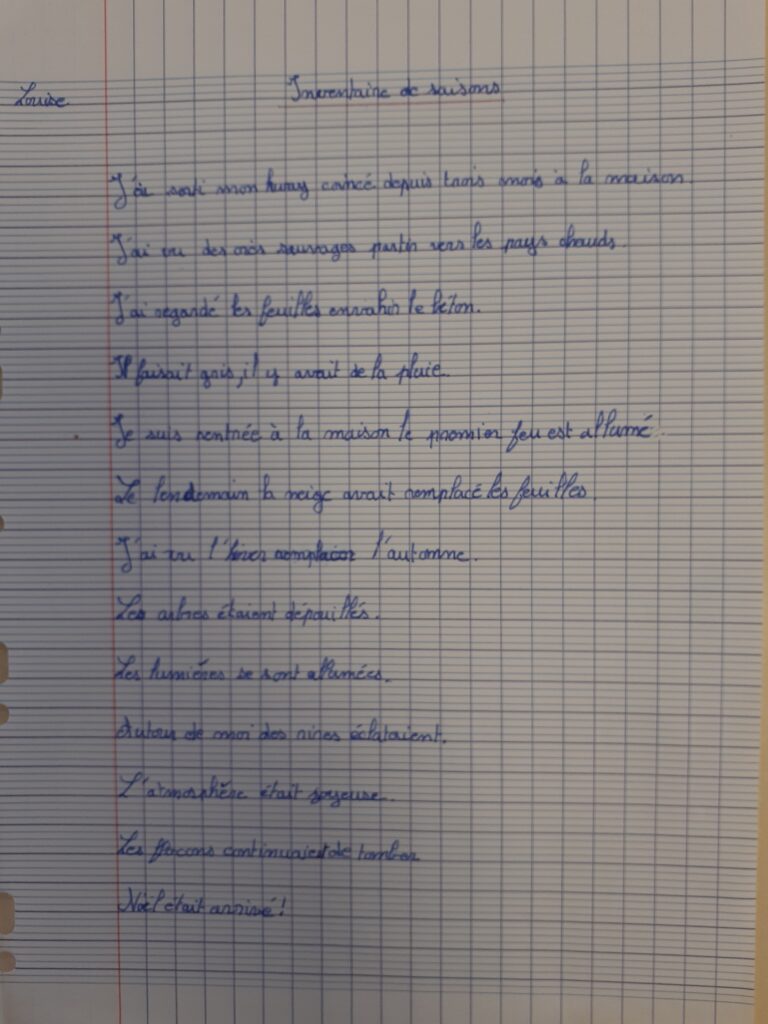 Louise
Inventaire de saisons
J'ai sorti mon kway coincé depuis trois mois à la maison.
J'ai vu des oies sauvages partir vers les pays chauds.
J'ai regardé les feuilles envahir le béton.
Il faisait gris, il y avait de la pluie.
Je suis rentrée à la maison le premier feu est allumé.
Le lendemain la neige avait remplacé les feuilles.
J'ai vu l'hiver remplacer l'automne.
Les arbres étaient dépouillés.
Les lumières se sont allumées.
Autour de moi des rires éclataient.
L'atmosphère était joyeuse.
Les flocons continuaient de tomber
Noël était arrivé !